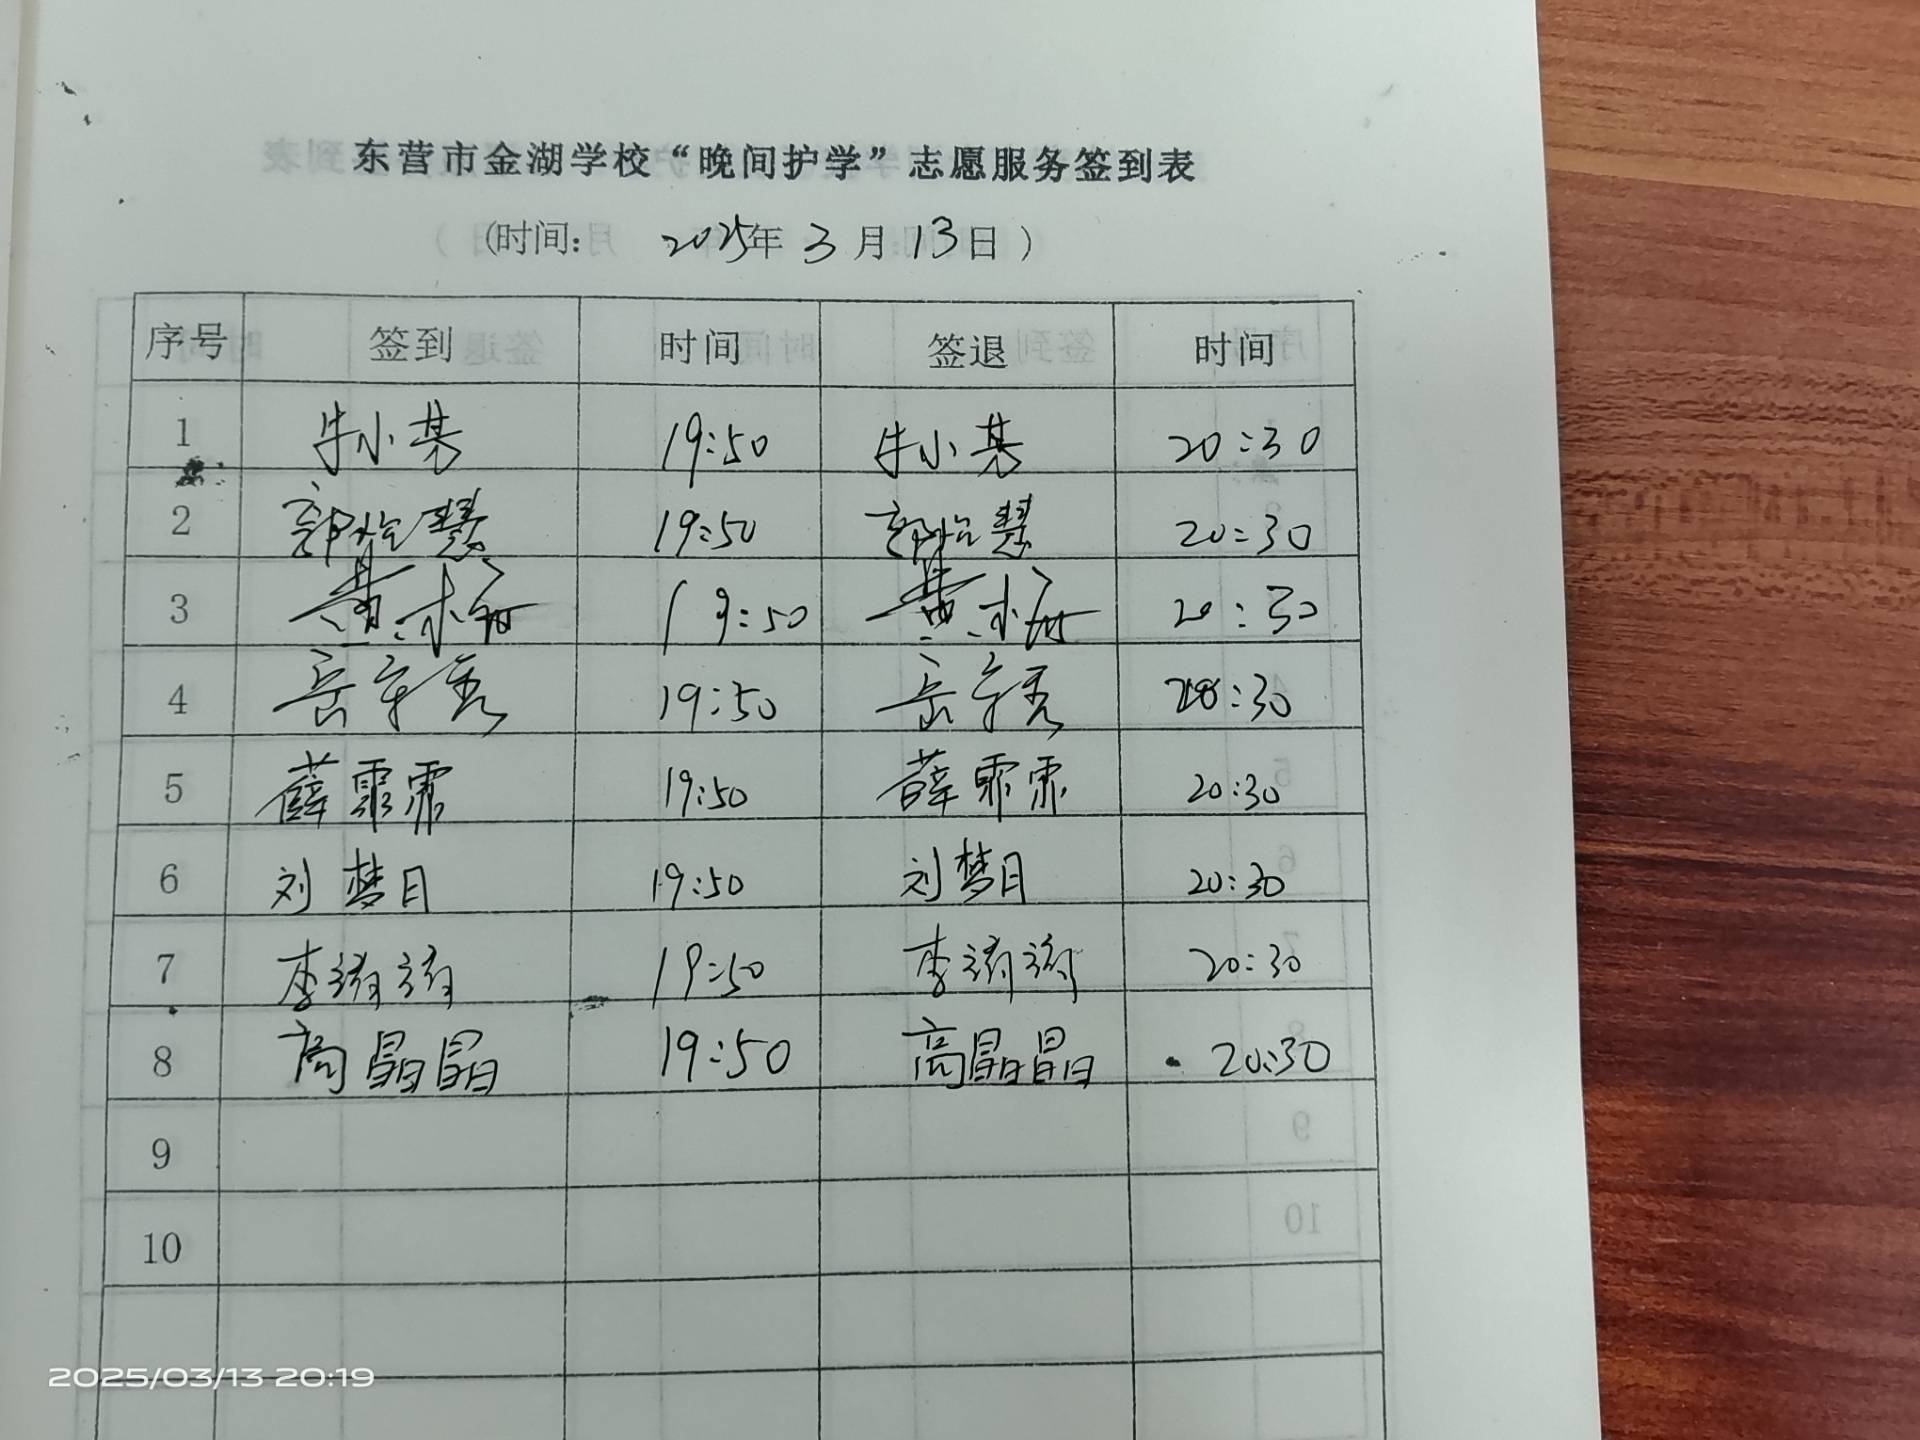 东营市金湖学校“晚间护学”志愿服务签到表
(时间: 2025年 3 月 13 日 )
序号 签到 时间 签退 时间
1 牛小募 19:50 牛小募 20:30
2 郭怡慧 19:50 郭怡慧 20:30
3 黄 19:50 黄 20:30
4 岳 秀 19:50 岳 秀 20:30
5 薛霏霏 19:50 薛霏霏 20:30
6 刘梦月 19:50 刘梦月 20:30
7 李 19:50 李 20:30
8 高晶晶 19:50 高晶晶 20:30
9
10
2025/03/13 20:19